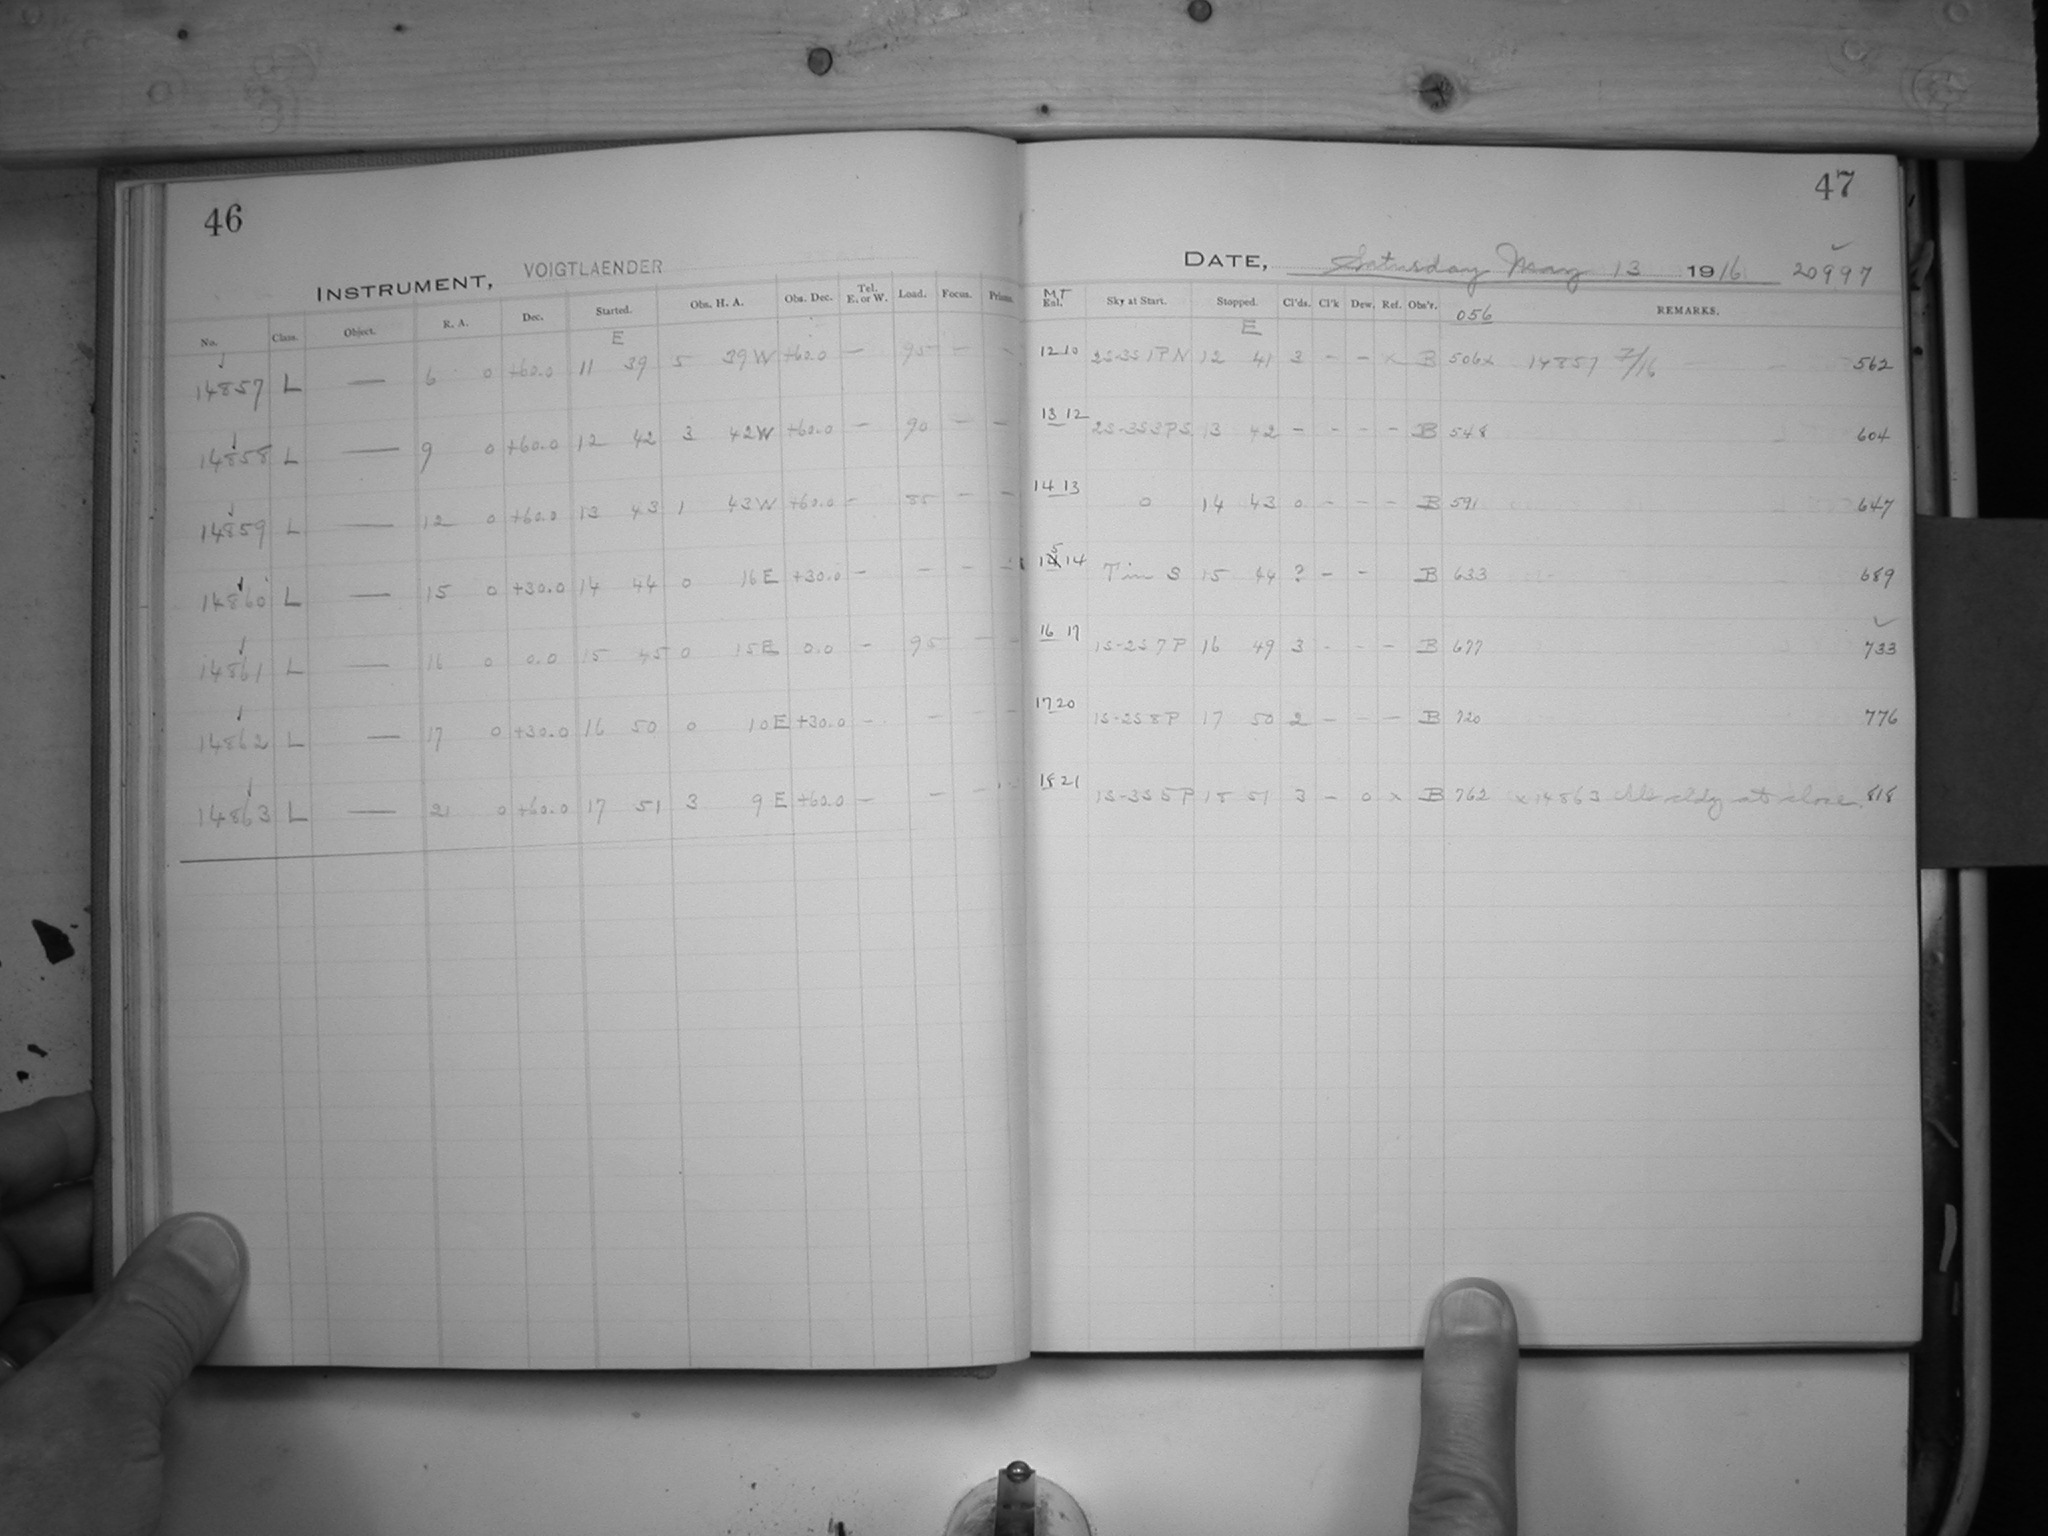 46
INSTRUMENT, VOIGTLAENDER
No. Class. Object. R. A. Dec. Started. Obs. H. A. Obs. Dec. Tel. E. or W. Load. Focus. Prism.
E
14857 L — 6 0 +60.0 11 39 5 39 W +60.0 — 95 — —
14858 L — 9 0 +60.0 12 42 3 42 W +60.0 — 90 — —
14859 L — 12 0 +60.0 13 43 1 43 W +60.0 — 85 — —
14860 L — 15 0 +30.0 14 44 0 16 E +30.0 — — — —
14861 L — 16 0 0.0 15 45 0 15 E 0.0 — 95 — —
14862 L — 17 0 +30.0 16 50 0 10 E +30.0 — — — —
14863 L — 21 0 +60.0 17 51 3 9 E +60.0 — — — —
47
DATE, Saturday May 13 1916 20997
MT
Enl. Sky at Start. Stopped. Cl'ds. Cl'k Dew. Ref. Obs'r. 056 REMARKS.
E
12 10 2S-3S 1P N 12 41 3 — — x B 506x 14857 7/16 562
13 12 2S-3S 3P S 13 42 — — — — B 548 604
14 13 0 14 43 0 — — — B 591 647
15 14 S 15 44 ? — — B 633 689
16 17 1S-2S 7P 16 49 3 — — — B 677 733
17 20 1S-2S 8P 17 50 2 — — — B 720 776
18 21 1S-3S 5P 18 51 3 — 0 x B 762 x 14863 cldy at close. 818